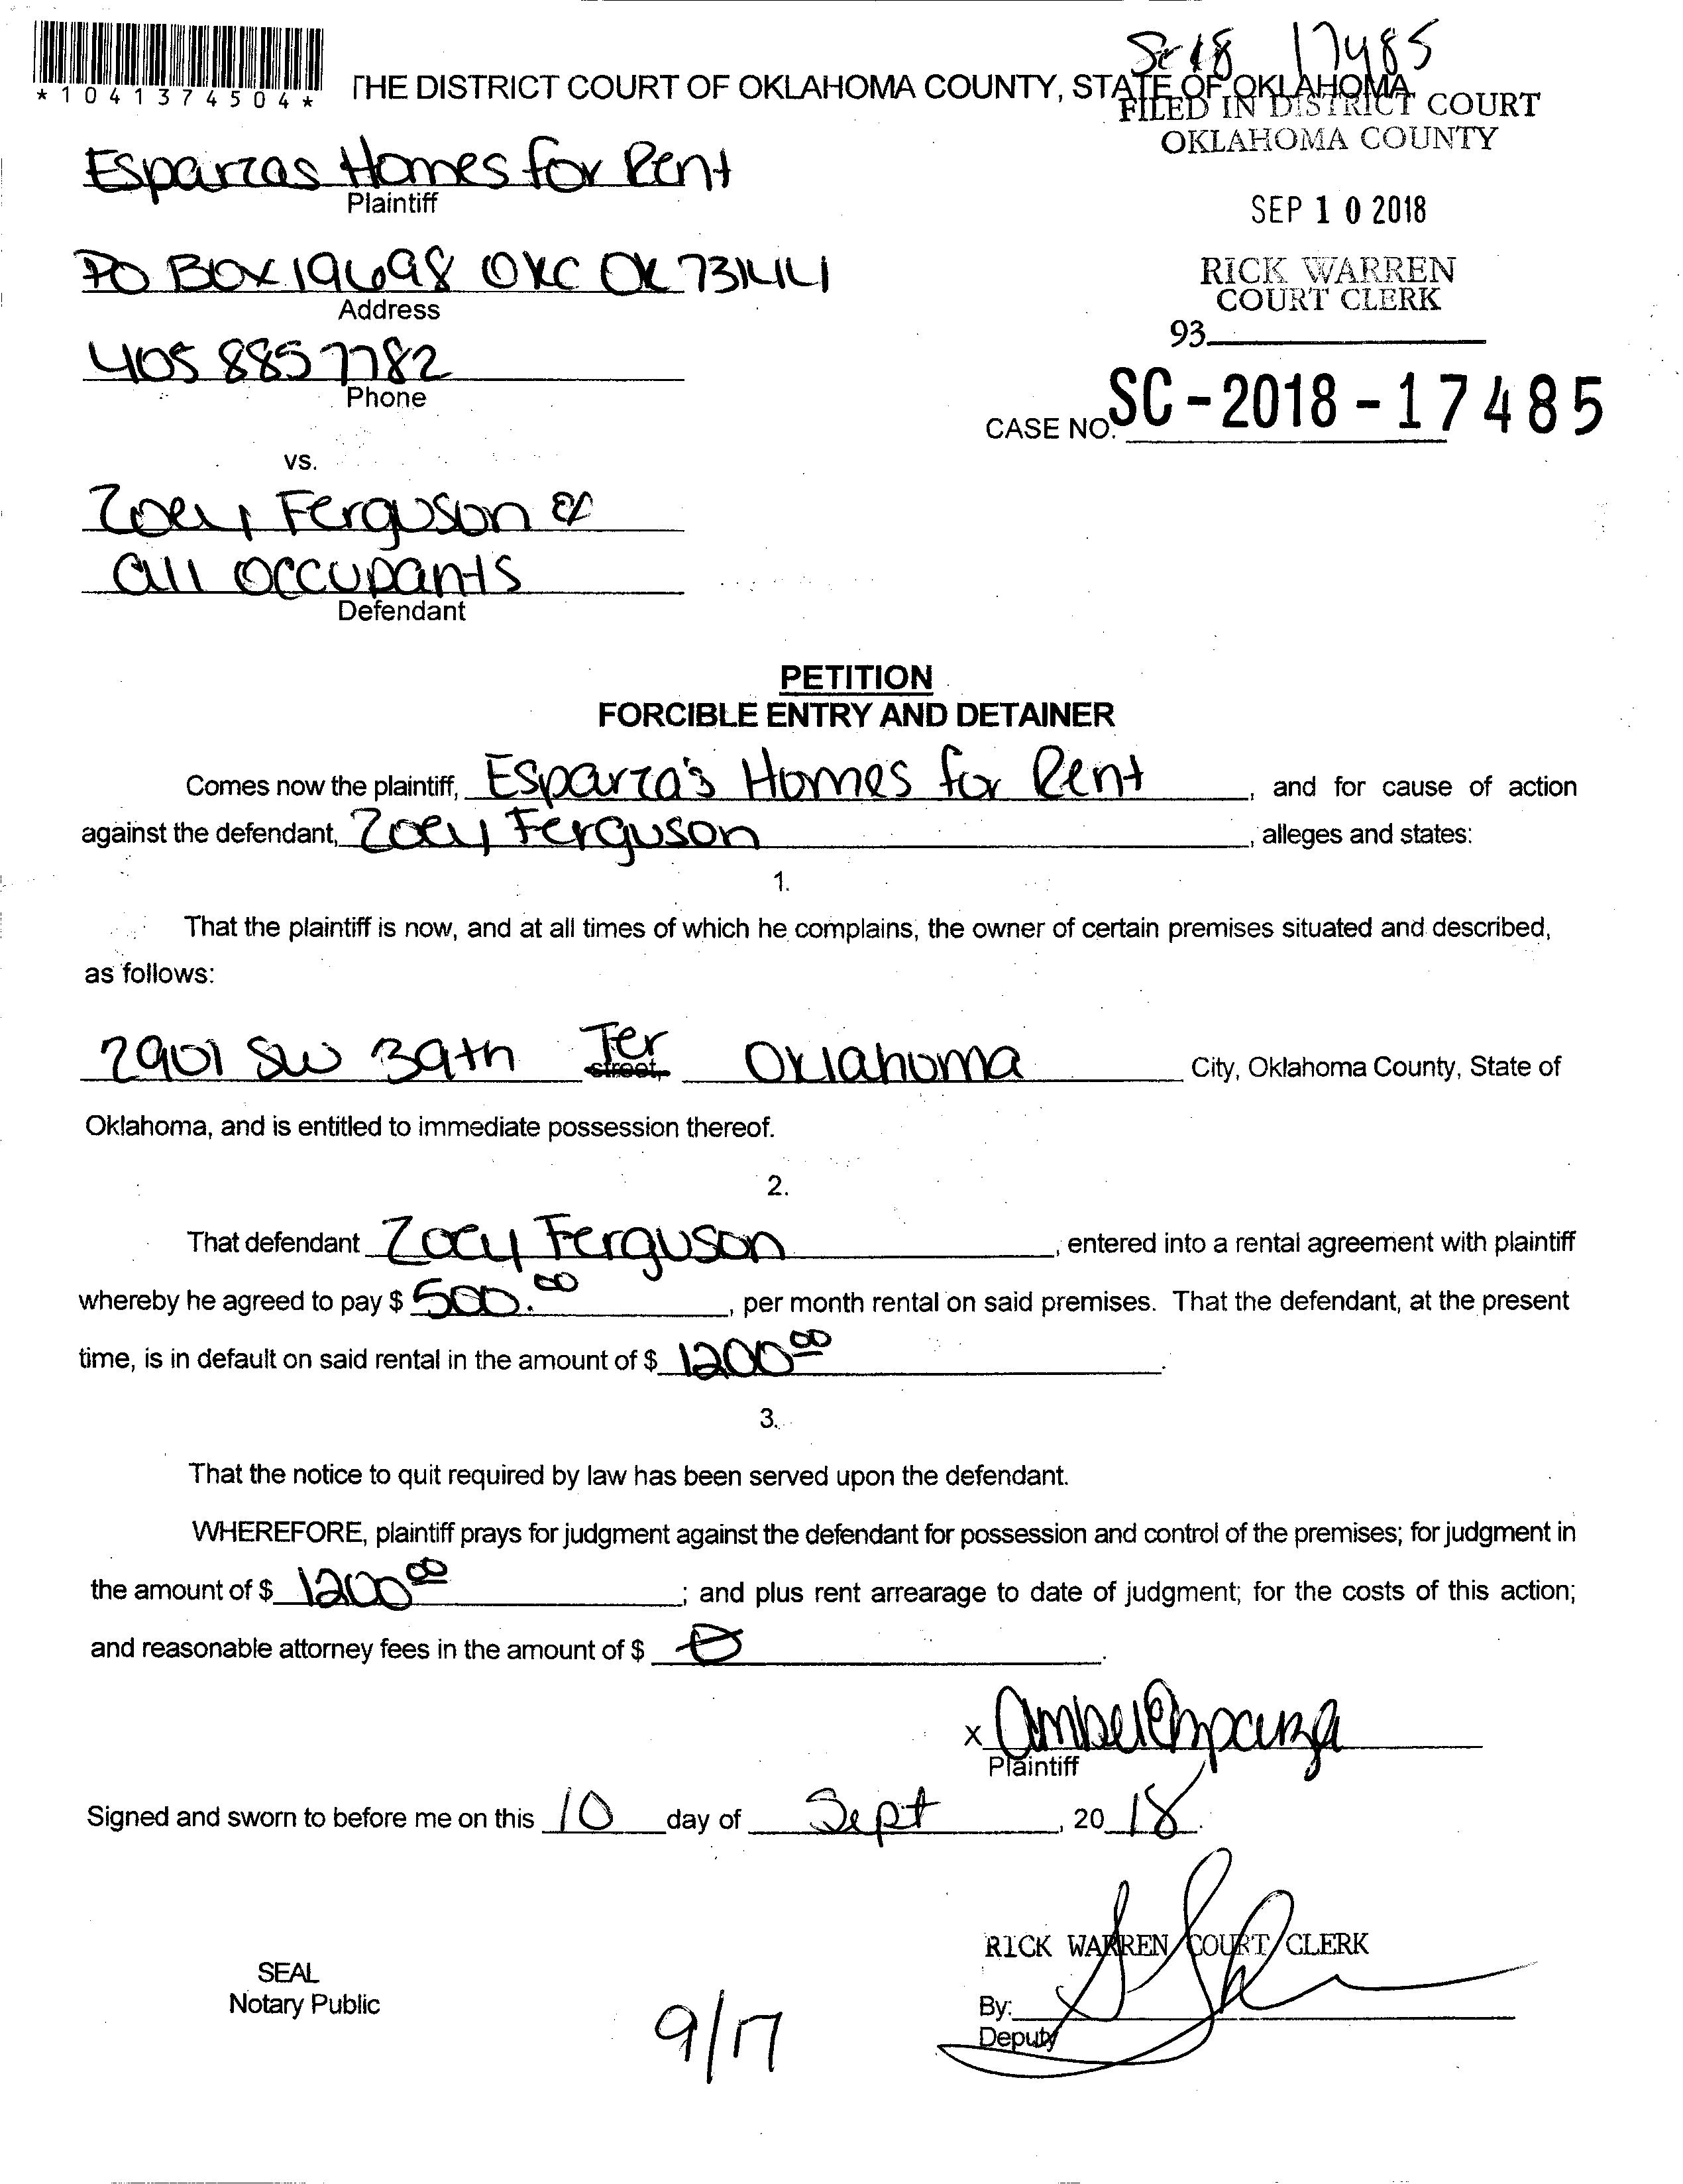 Sc 18 17485
*1041374504*
THE DISTRICT COURT OF OKLAHOMA COUNTY, STATE OF OKLAHOMA
FILED IN DISTRICT COURT
OKLAHOMA COUNTY
Esparzas Homes for Rent
Plaintiff
SEP 10 2018
PO BOX 19698 OKC OK 73144
Address
RICK WARREN
COURT CLERK
93
405 885 7782
Phone
CASE NO. SC-2018-17485
vs.
Zoey Ferguson &
all occupants
Defendant
PETITION
FORCIBLE ENTRY AND DETAINER
Comes now the plaintiff, Esparza's Homes for Rent, and for cause of action
against the defendant, Zoey Ferguson, alleges and states:
1.
That the plaintiff is now, and at all times of which he complains, the owner of certain premises situated and described,
as follows:
2901 SW 39th Ter street, Oklahoma City, Oklahoma County, State of
Oklahoma, and is entitled to immediate possession thereof.
2.
That defendant Zoey Ferguson, entered into a rental agreement with plaintiff
whereby he agreed to pay $ 500.00, per month rental on said premises. That the defendant, at the present
time, is in default on said rental in the amount of $ 1200 00.
3.
That the notice to quit required by law has been served upon the defendant.
WHEREFORE, plaintiff prays for judgment against the defendant for possession and control of the premises; for judgment in
the amount of $ 1200 00; and plus rent arrearage to date of judgment; for the costs of this action;
and reasonable attorney fees in the amount of $ 0.
x Amber Esparza
Plaintiff
Signed and sworn to before me on this 10 day of Sept, 20 18.
RICK WARREN COURT CLERK
SEAL
Notary Public
By:
Deputy
9/17